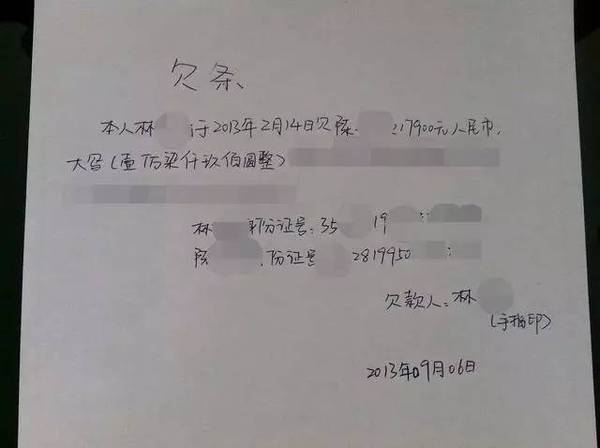 欠条
本人林 于2013年2月14日欠陈 17900元人民币,
大写(壹仿梁仟玖佰圆整)
林 份证号:35 19
陈 份证号 2819950
欠款人:林
(手指印)
2013年09月06日